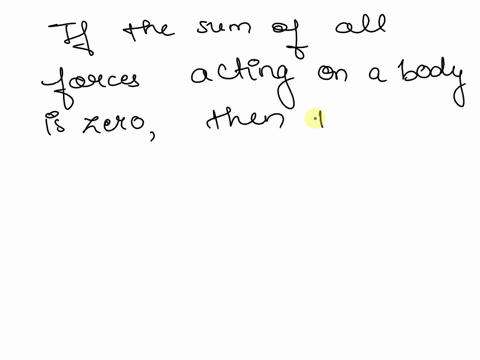 If the sum of all
forces acting on a body
is zero, then